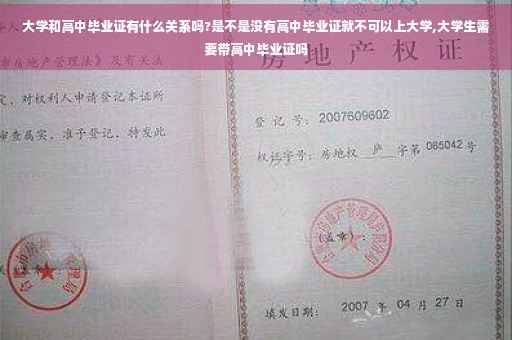 大学和高中毕业证有什么关系吗?是不是没有高中毕业证就不可以上大学,大学生需
要带高中毕业证吗
房地产权证
市房地产管理法》及有关法
定，对权利人申请登记本证所
审查属实，准予登记，特发此
登 记 号：2007609602
权证字号：房地权 庐 字第 065042 号
（盖章）：
填发日期： 2007 年 04 月 27 日